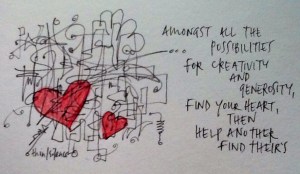 AMONGST ALL THE
POSSIBILITIES
FOR CREATIVITY
AND
GENEROSITY,
FIND YOUR HEART,
THEN
HELP ANOTHER
FIND THEIR'S